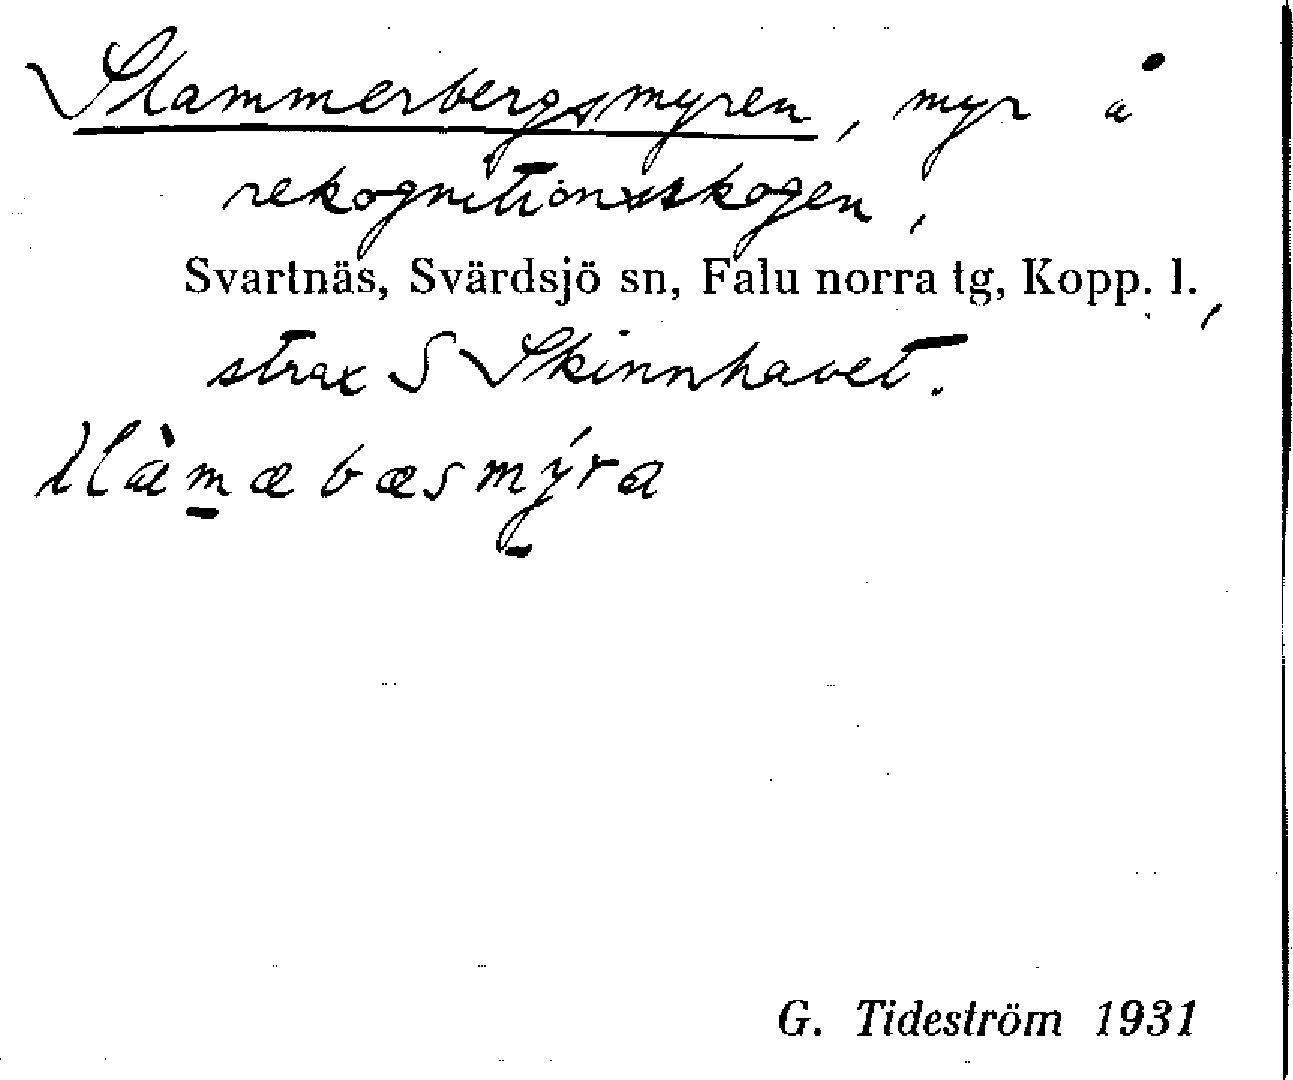 Slammerbergsmyren, myr å
rekognitionsskogen,
Svartnäs, Svärdsjö sn, Falu norra tg, Kopp. l.,
strax S Skinnhavet.
G. Tideström 1931